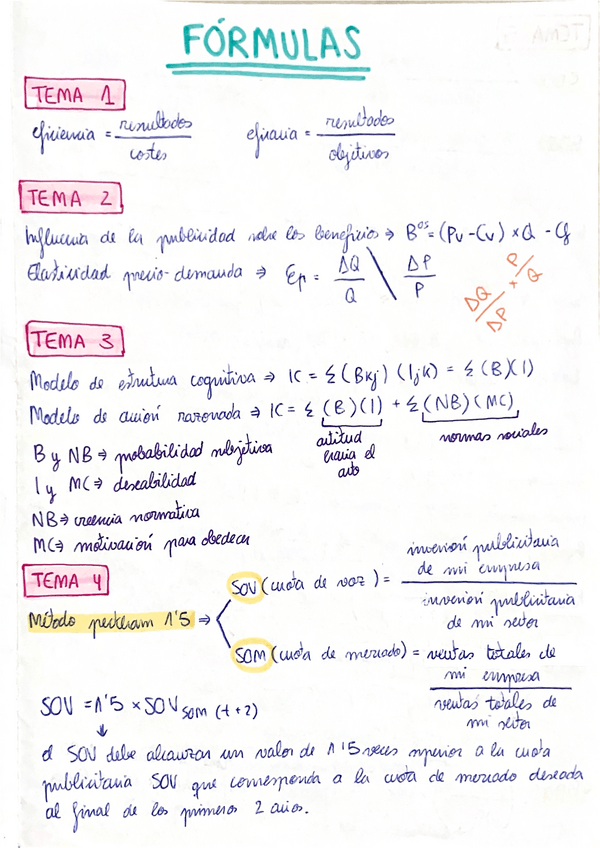 FÓRMULAS
TEMA 1
eficiencia = resultados / costes    eficacia = resultados / objetivos
TEMA 2
Influencia de la publicidad sobre los beneficios → Bºs = (Pv - Cv) × Q - Cf
Elasticidad precio-demanda ⇒ Ep = ΔQ / Q \ ΔP / P
ΔQ / ΔP × P / Q
TEMA 3
Modelo de estructura cognitiva ⇒ IC = Σ (Bkj) (Ijk) = Σ (B)(I)
Modelo de acción razonada ⇒ IC = Σ (B)(I) + Σ (NB)(MC)
actitud hacia el acto    normas sociales
B y NB ⇒ probabilidad subjetiva
I y MC ⇒ deseabilidad
NB ⇒ creencia normativa
MC ⇒ motivación para obedecer
TEMA 4
Método peckham 1'5 ⇒
SOV (cuota de voz) = inversión publicitaria de mi empresa / inversión publicitaria de mi sector
SOM (cuota de mercado) = ventas totales de mi empresa / ventas totales de mi sector
SOV = 1'5 × SOV SOM (t + 2)
el SOV debe alcanzar un valor de 1'5 veces superior a la cuota
publicitaria SOV que corresponda a la cuota de mercado deseada
al final de los primeros 2 años.